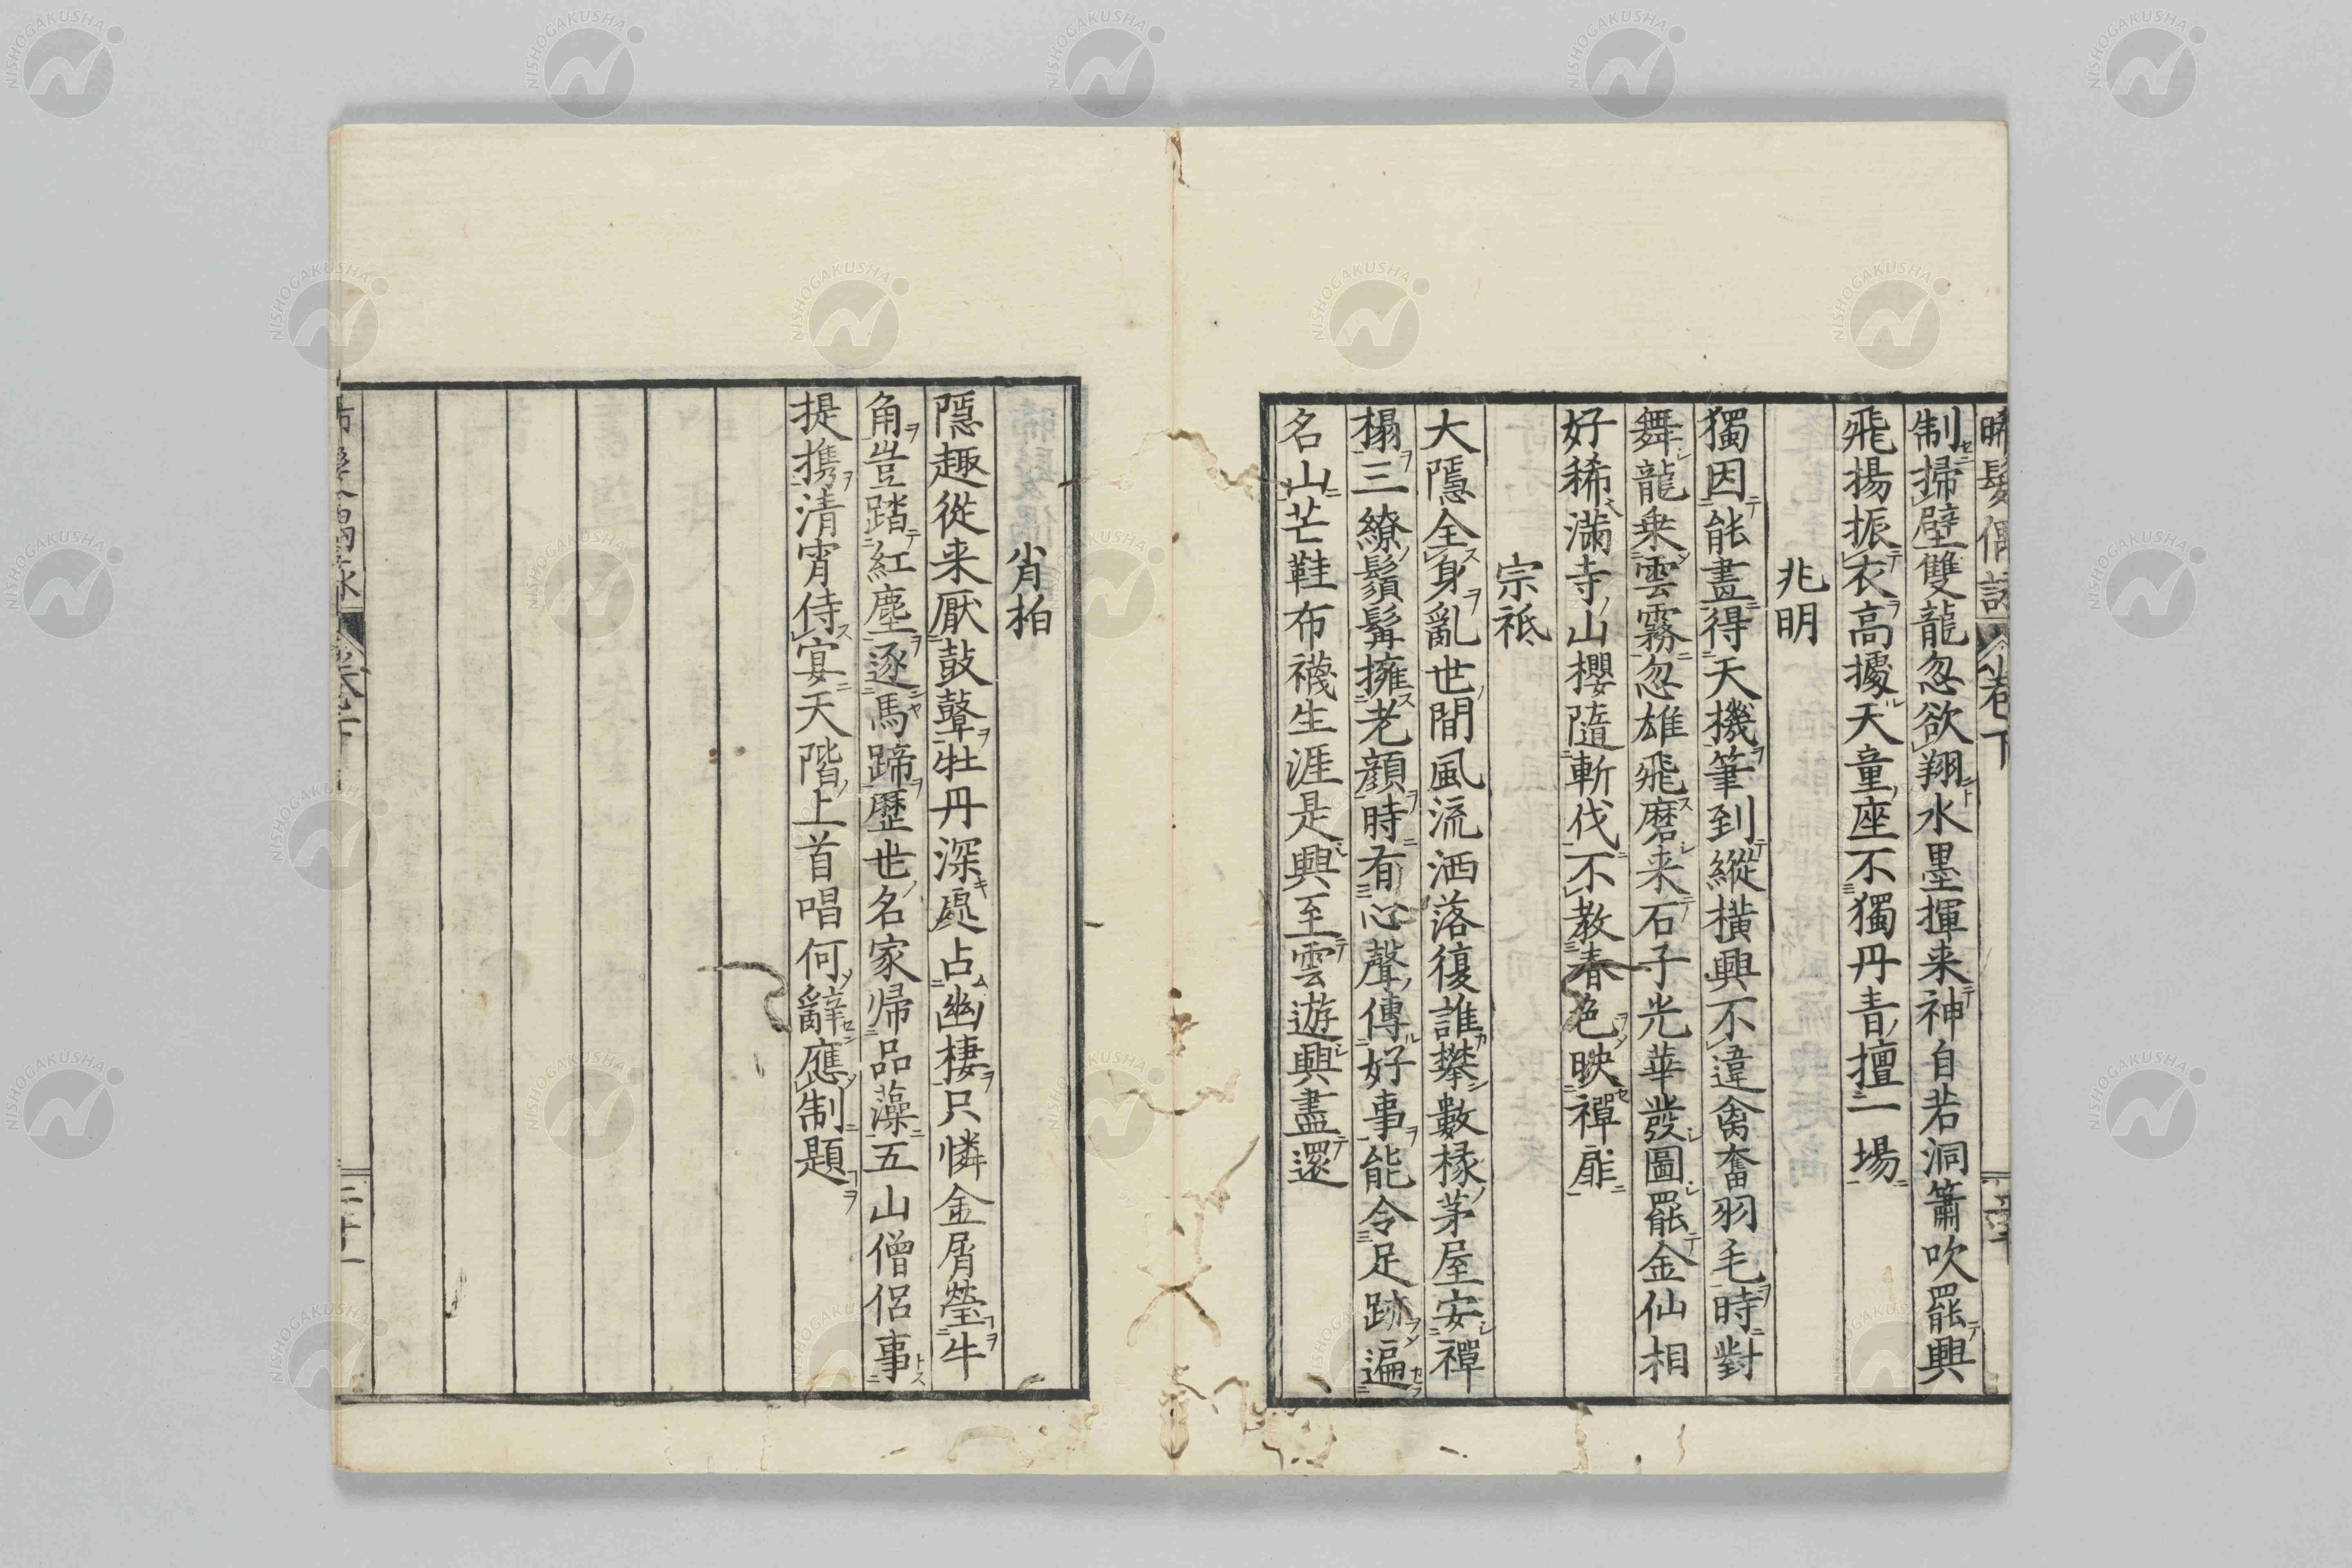 晞髮偶詠 卷下
制掃壁雙龍忽欲翔水墨揮来神自若洞簫吹罷興
飛揚振衣高擾天童座不獨丹青擅一場
兆明
獨因能畫得天機筆到縱横興不違禽奮羽毛時對
舞龍乗雲霧忽雄飛磨来石子光華發圖罷金仙相
好稀滿寺山櫻隨斬伐不教春色映禪扉
宗祇
大隱全身亂世間風流洒落復誰攀數椽茅屋安禪
榻三繚鬚髯擁老顔時有心聲傳好事能令足跡遍
名山芒鞋布襪生涯是興至雲遊興盡還
肖柏
隱趣從来厭鼓鼙牡丹深處占幽棲只憐金屑瑩牛
角豈踏紅塵逐馬蹄歷世名家帰品藻五山僧侶事
提携清宵侍宴天階上首唱何辭應制題
卷下
二十一
NISHOGAKUSHA